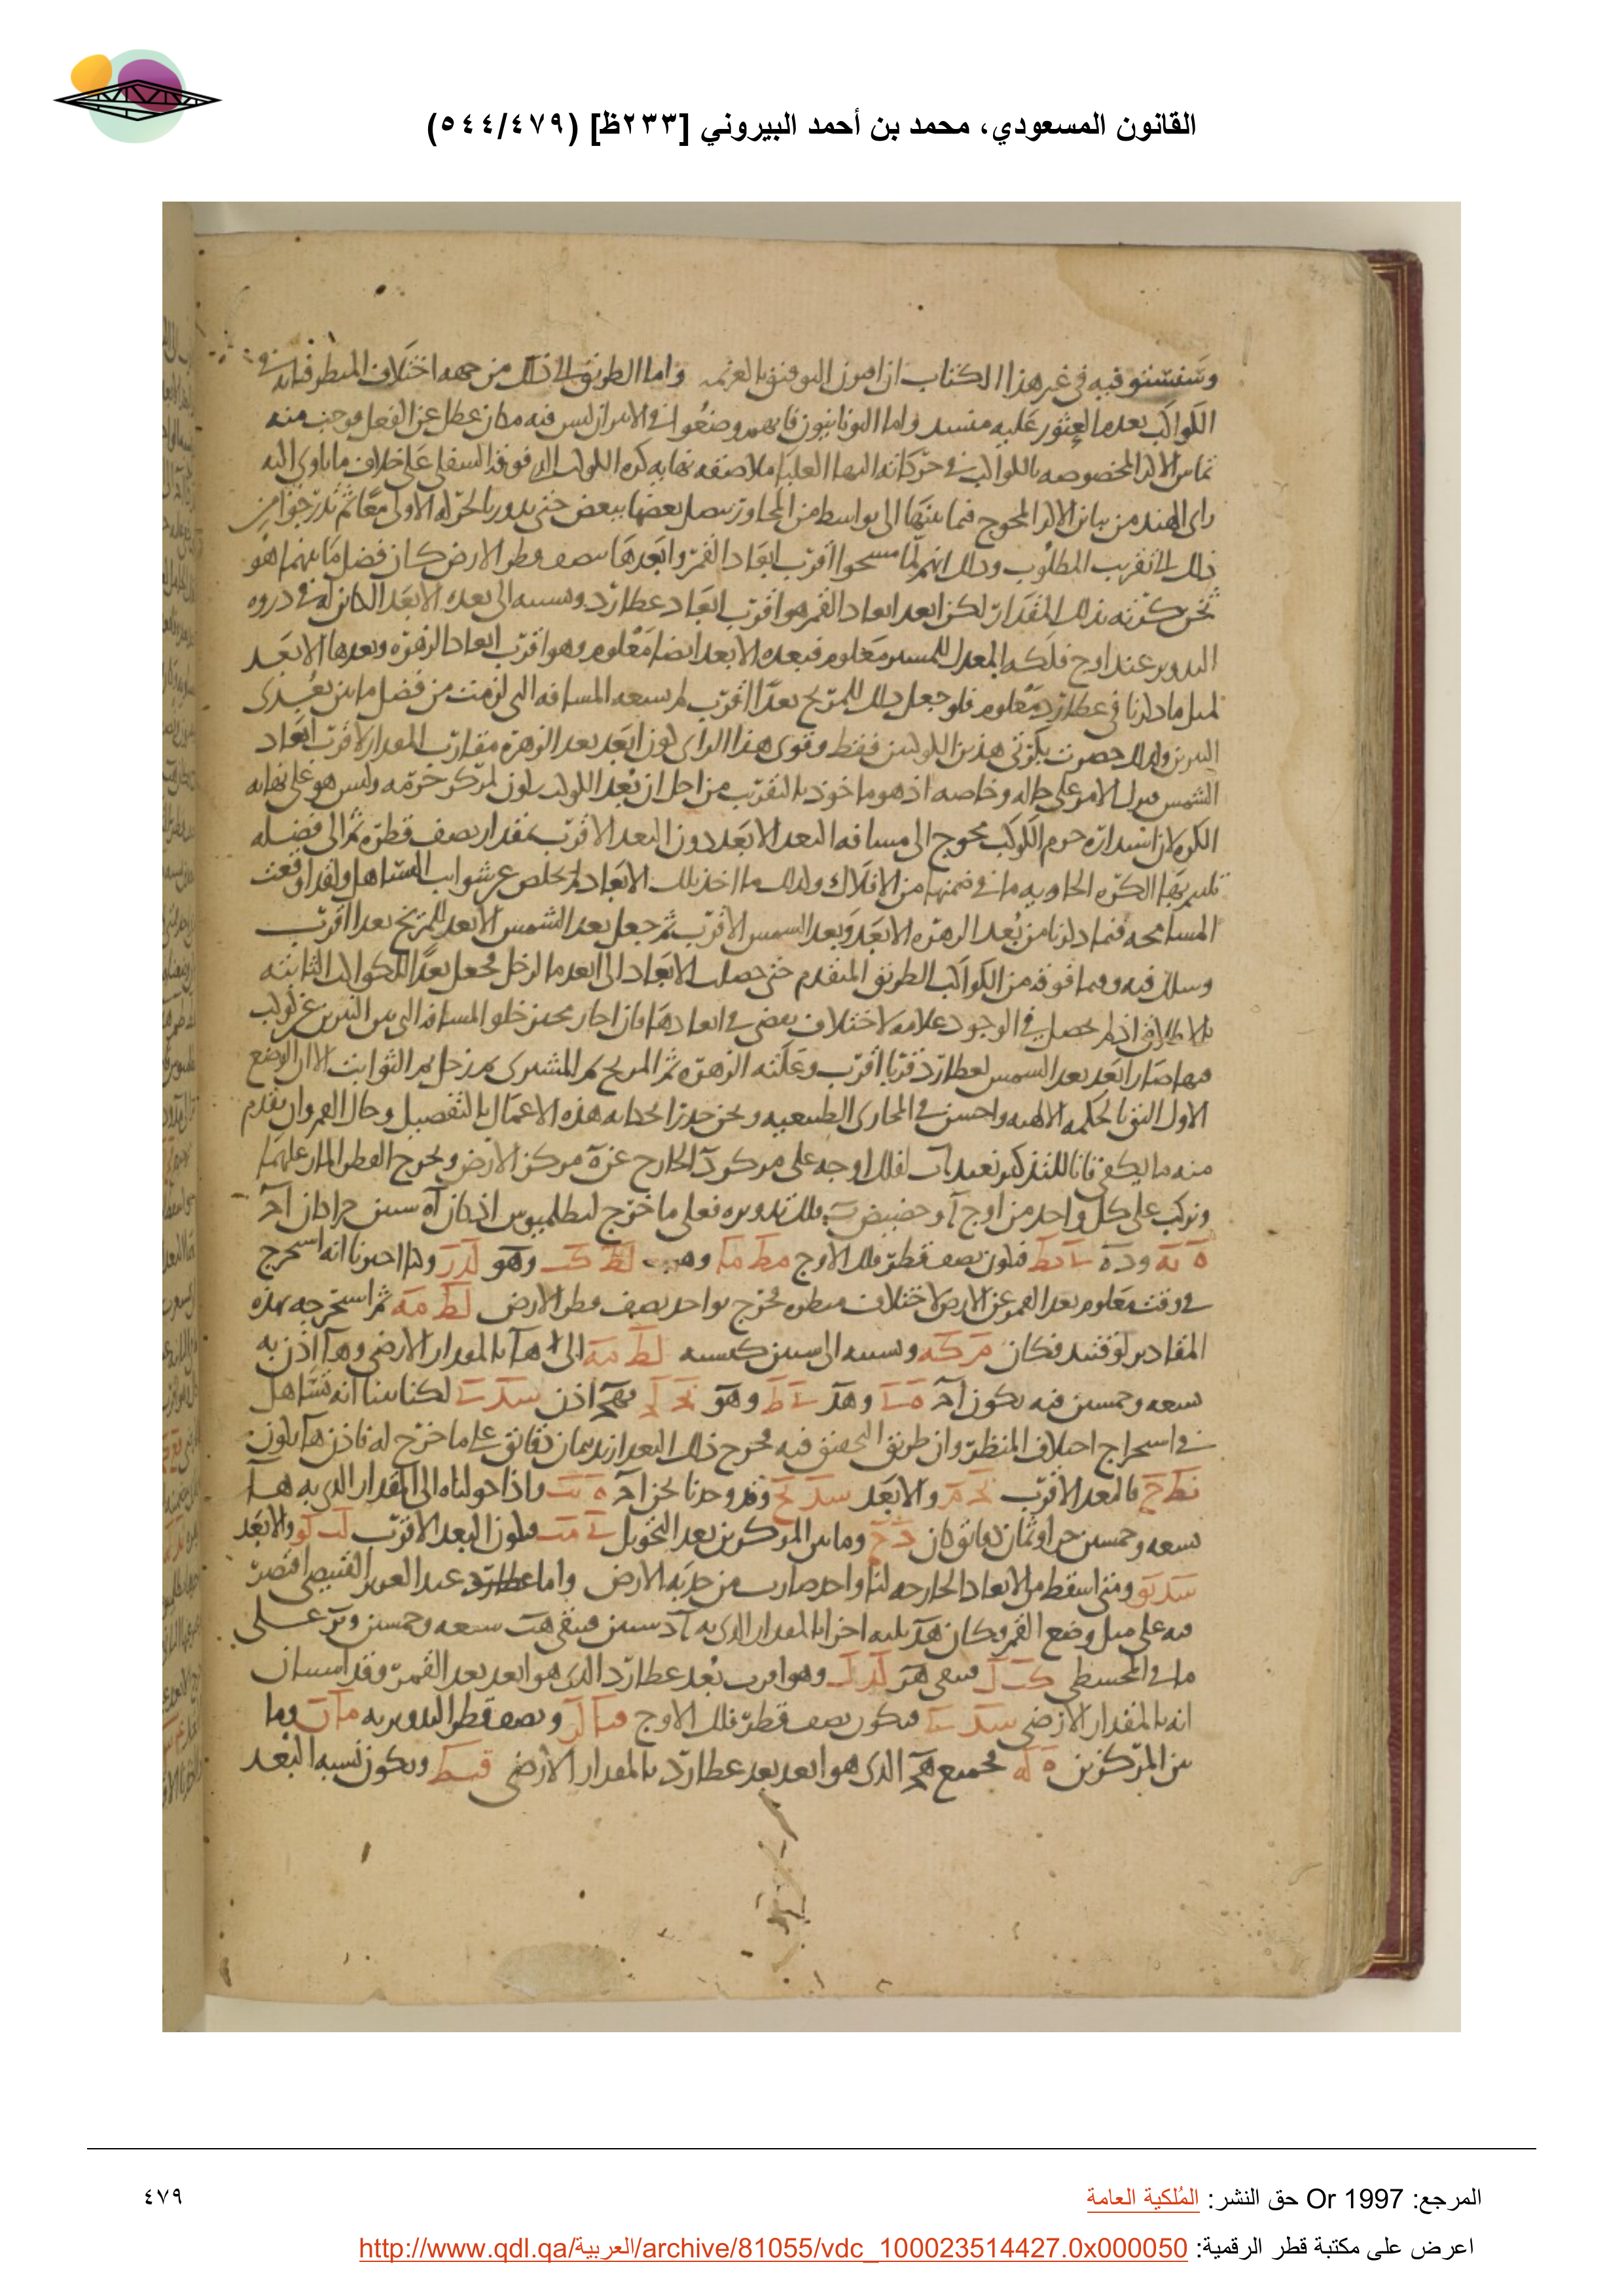 القانون المسعودي، محمد بن أحمد البيروني [٢٣٣ظ] (٥٤٤/٤٧٩)
وسنستوفيه في غير هذا الكتاب ان اقترن التوفيق بالعزيمة واما الطريق الى ذلك من جهة اختلاف المنظر فبابه في
الكواكب بعدم العثور عليه منسد واما اليونانيون فانهم وضعوا في الاثير ان ليس فيه مكان عطل عن الفعل فوجب منه
تماس الاكر المخصوصه بالكواكب في حركاته نهايتها العليا ملاصقه نهايه كره الكوكب الذى فوقه السفلى على خلاف ما ياوى اليه
راى الهند من تباين الاكر المحوج فيما بينها الى بواسط من المجاور يتصل بعضها ببعض حتى يدور بالحركه الاولى معا ثم تدرجوا من
ذلك الى تقريب المطلوب وذلك انهم لما مسحوا اقرب ابعاد القمر وابعدها بنصف قطر الارض كان فضل ما بينهما هو
ثخن كرته بذلك المقدار لكن ابعد ابعاد القمر هو اقرب ابعاد عطارد ونسبته الى بعده الابعد الكائن له في ذروه
التدوير عند اوج فلكه المعدل للمسير معلوم فبعده الابعد ايضا معلوم وهو اقرب ابعاد الزهره وبعدها الابعد
لمثل ما ذكرنا في عطارد معلوم فلو جعل ذلك للمريخ بعدا اقرب لم يسعه المسافه التي لزمت من فضل ما بين بعدى
النيرين ولذلك حصرت بكرتى هذين الكوكبين فقط وقوى هذا الراى كون ابعد بعد الزهره مقارب المقدار لاقرب ابعاد
الشمس فترك الامر على حاله وخاصه اذ هو ماخوذ بالتقريب من اجل ان بعد الكوكب يكون لمركز جرمه وليس هو على نهايه
الكره لان استداره جرم الكوكب محوج الى مسافه البعد الابعد دون البعد الاقرب بمقدار نصف قطره ثم الى فضله
تلتئم بها الكره الحاويه ما في ضمنها من الافلاك ولذلك ما اخذ تلك الابعاد لم تخلص عن شوايب التساهل ولقد اوقعت
المسامحه فيما ذكرنا من بعد الزهره الابعد وبعد الشمس الاقرب ثم جعل بعد الشمس الابعد للمريخ بعدا اقرب
وسلك فيه وفيما فوقه من الكواكب الطريق المتقدم حتى حصلت الابعاد الى ابعد ما لزحل فجعل بعدا للكواكب الثابته
بالاطلاق اذ لم يحصل في الوجود علامه لاختلاف بعضى في ابعادها فان اجاز مجيز خلو المسافه التي بين النيرين عن كوكب
فيها صار ابعد بعد الشمس لعطارد قربا اقرب وعلته الزهره ثم المريخ ثم المشترى ثم زحل ثم الثوابت الا ان الوضع
الاول اليق بالحكمه الالهيه واحسن في المجارى الطبيعيه ونحن حذرنا لحكايه هذه الاعمال بالتفصيل وحال القمر وان تقدم
منه ما يكفي فانا للتذكير نعيد اب لفلك اوجه على مركز د الخارج عن ه مركز الارض ونخرج القطر المار عليهما
ونركب على كل واحد من اوج ا وحضيض ب فلك تدويره فعلى ما خرج لبطلميوس اذ كان اه ستين جزا كان اح
ه يه و د ه ىا يط فيكون نصف قطر فلك الاوج مط ما وهب لط كب وهو لد ز وكنا اخبرنا انه استخرج
في وقت معلوم بعد القمر عن الارض لاختلاف منظره فخرج بواحد نصف قطر الارض لط مه ثم استخرجه بهذه
المقادير لوقتئذ فكان م كه ونسبته الى ستين كنسبه لط مه الى ه ا بالمقدار الارضي وه ا اذن به
تسعه وخمسين فيه يكون اح ه ى وهد ى ط وهو لح ل فهح اذن سد ى لكنا بينا انه تساهل
في استخراج اختلاف المنظر وان طريق التحقيق فيه مخرج ذلك البعد ازيد بثمان دقائق على ما خرج له فاذن ها يكون
نط ح فالبعد الاقرب لح م والابعد سد ىح وقد وجدنا نحن اح ه ىب واذا حولناه الى المقدار الذي به ها
تسعه وخمسين جزا وثمان دقائق كان ه ح وما بين المركزين بعد التحويل ى مب فيكون البعد الاقرب لب لو والابعد
سد يو ومتى اسقط من الابعاد الخارجه لنا واحد صارت من حدبه الارض واما عطارد عبد العزيز القبيصى اقتصر
فيه على مثل وضع القمر وكان هد ثلثه اجزا بالمقدار الذى به اد ستين فيبقى هب سبعه وخمسين وبز على
ما في المجسطى كب ل فيبقى هز لد ل وهو اقرب بعد عطارد الذى هو ابعد بعد القمر وقد استبان
انه بالمقدار الارضي سد ى فيكون نصف قطر فلك الاوج قيا لز ونصف قطر التدوير به ما ن وما
بين المركزين ه له فجميع هح الذى هو ابعد بعد عطارد بالمقدار الارضي قسط ويكون نسبه البعد
المرجع: Or 1997 حق النشر: المُلكية العامة
٤٧٩
اعرض على مكتبة قطر الرقمية: http://www.qdl.qa/العربية/archive/81055/vdc_100023514427.0x000050